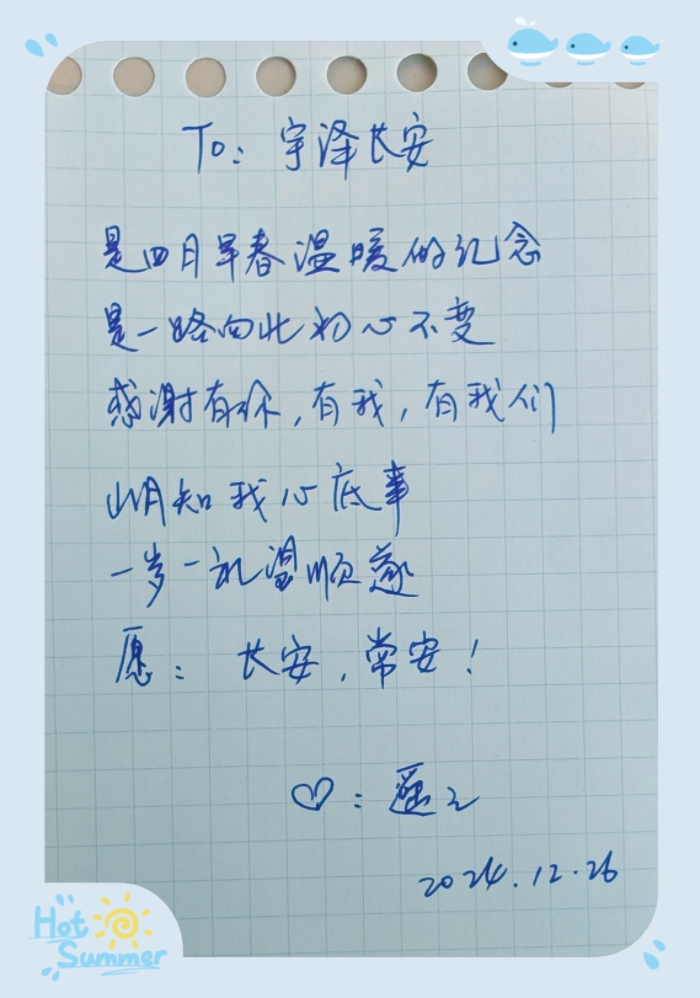 To: 宇泽长安
是四月早春温暖的纪念
是一路向北初心不变
感谢有你,有我,有我们
山月知我心底事
一岁一礼温顺遂
愿: 长安,常安!
♡: 遥之
2024.12.26
Hot
Summer